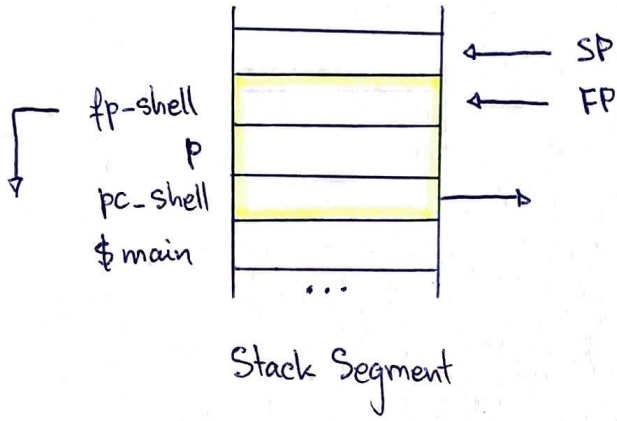 SP
fp-shell
FP
p
pc-shell
$main
...
Stack Segment